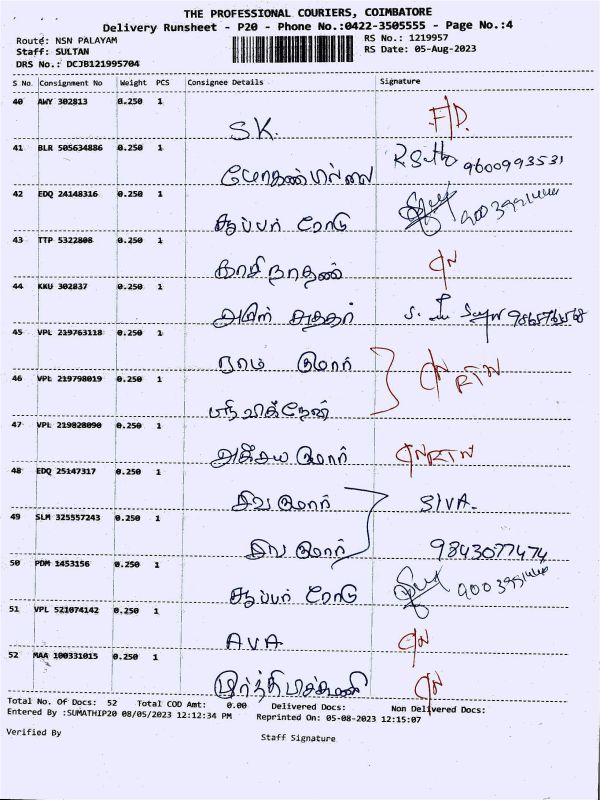 THE PROFESSIONAL COURIERS, COIMBATORE
Delivery Runsheet - P20 - Phone No.:0422-3505555 - Page No.:4
Route: NSN PALAYAM
RS No.: 1219957
Staff: SULTAN
RS Date: 05-Aug-2023
DRS No.: DCJB121995704
S No. Consignment No Weight PCS Consignee Details Signature
40 AWY 302813 0.250 1
S.K. F/D.
41 BLR 505634886 0.250 1
9600993531
42 EDQ 24148316 0.250 1
சூப்பர் ரோடு
43 TTP 5322808 0.250 1
காசிநாதன்
44 KKU 302837 0.250 1
45 VPL 219763118 0.250 1
ராம் குமார்
46 VPL 219798019 0.250 1
RTN
ஸ்ரீ விக்னேஷ்
47 VPL 219828090 0.250 1
அக்சய குமார் RTN
48 EDQ 25147317 0.250 1
சிவ குமார் SIVA.
49 SLM 325557243 0.250 1
சிவ குமார் 9843077474
50 PDM 1453156 0.250 1
சூப்பர் ரோடு
51 VPL 521074142 0.250 1
AVA
52 MAA 100331015 0.250 1
Total No. Of Docs: 52 Total COD Amt: 0.00 Delivered Docs: Non Delivered Docs:
Entered By :SUMATHIP20 08/05/2023 12:12:34 PM Reprinted On: 05-08-2023 12:15:07
Verified By
Staff Signature